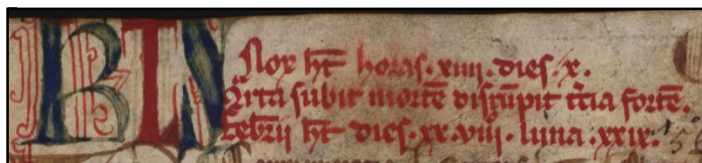 KL N Nox ht̄ horas. xiiii. dies. x.
Qrta subit mortē disrūpit t̄cia fortē.
febrīī ht̄ dies. xxviii. luna. xxix.